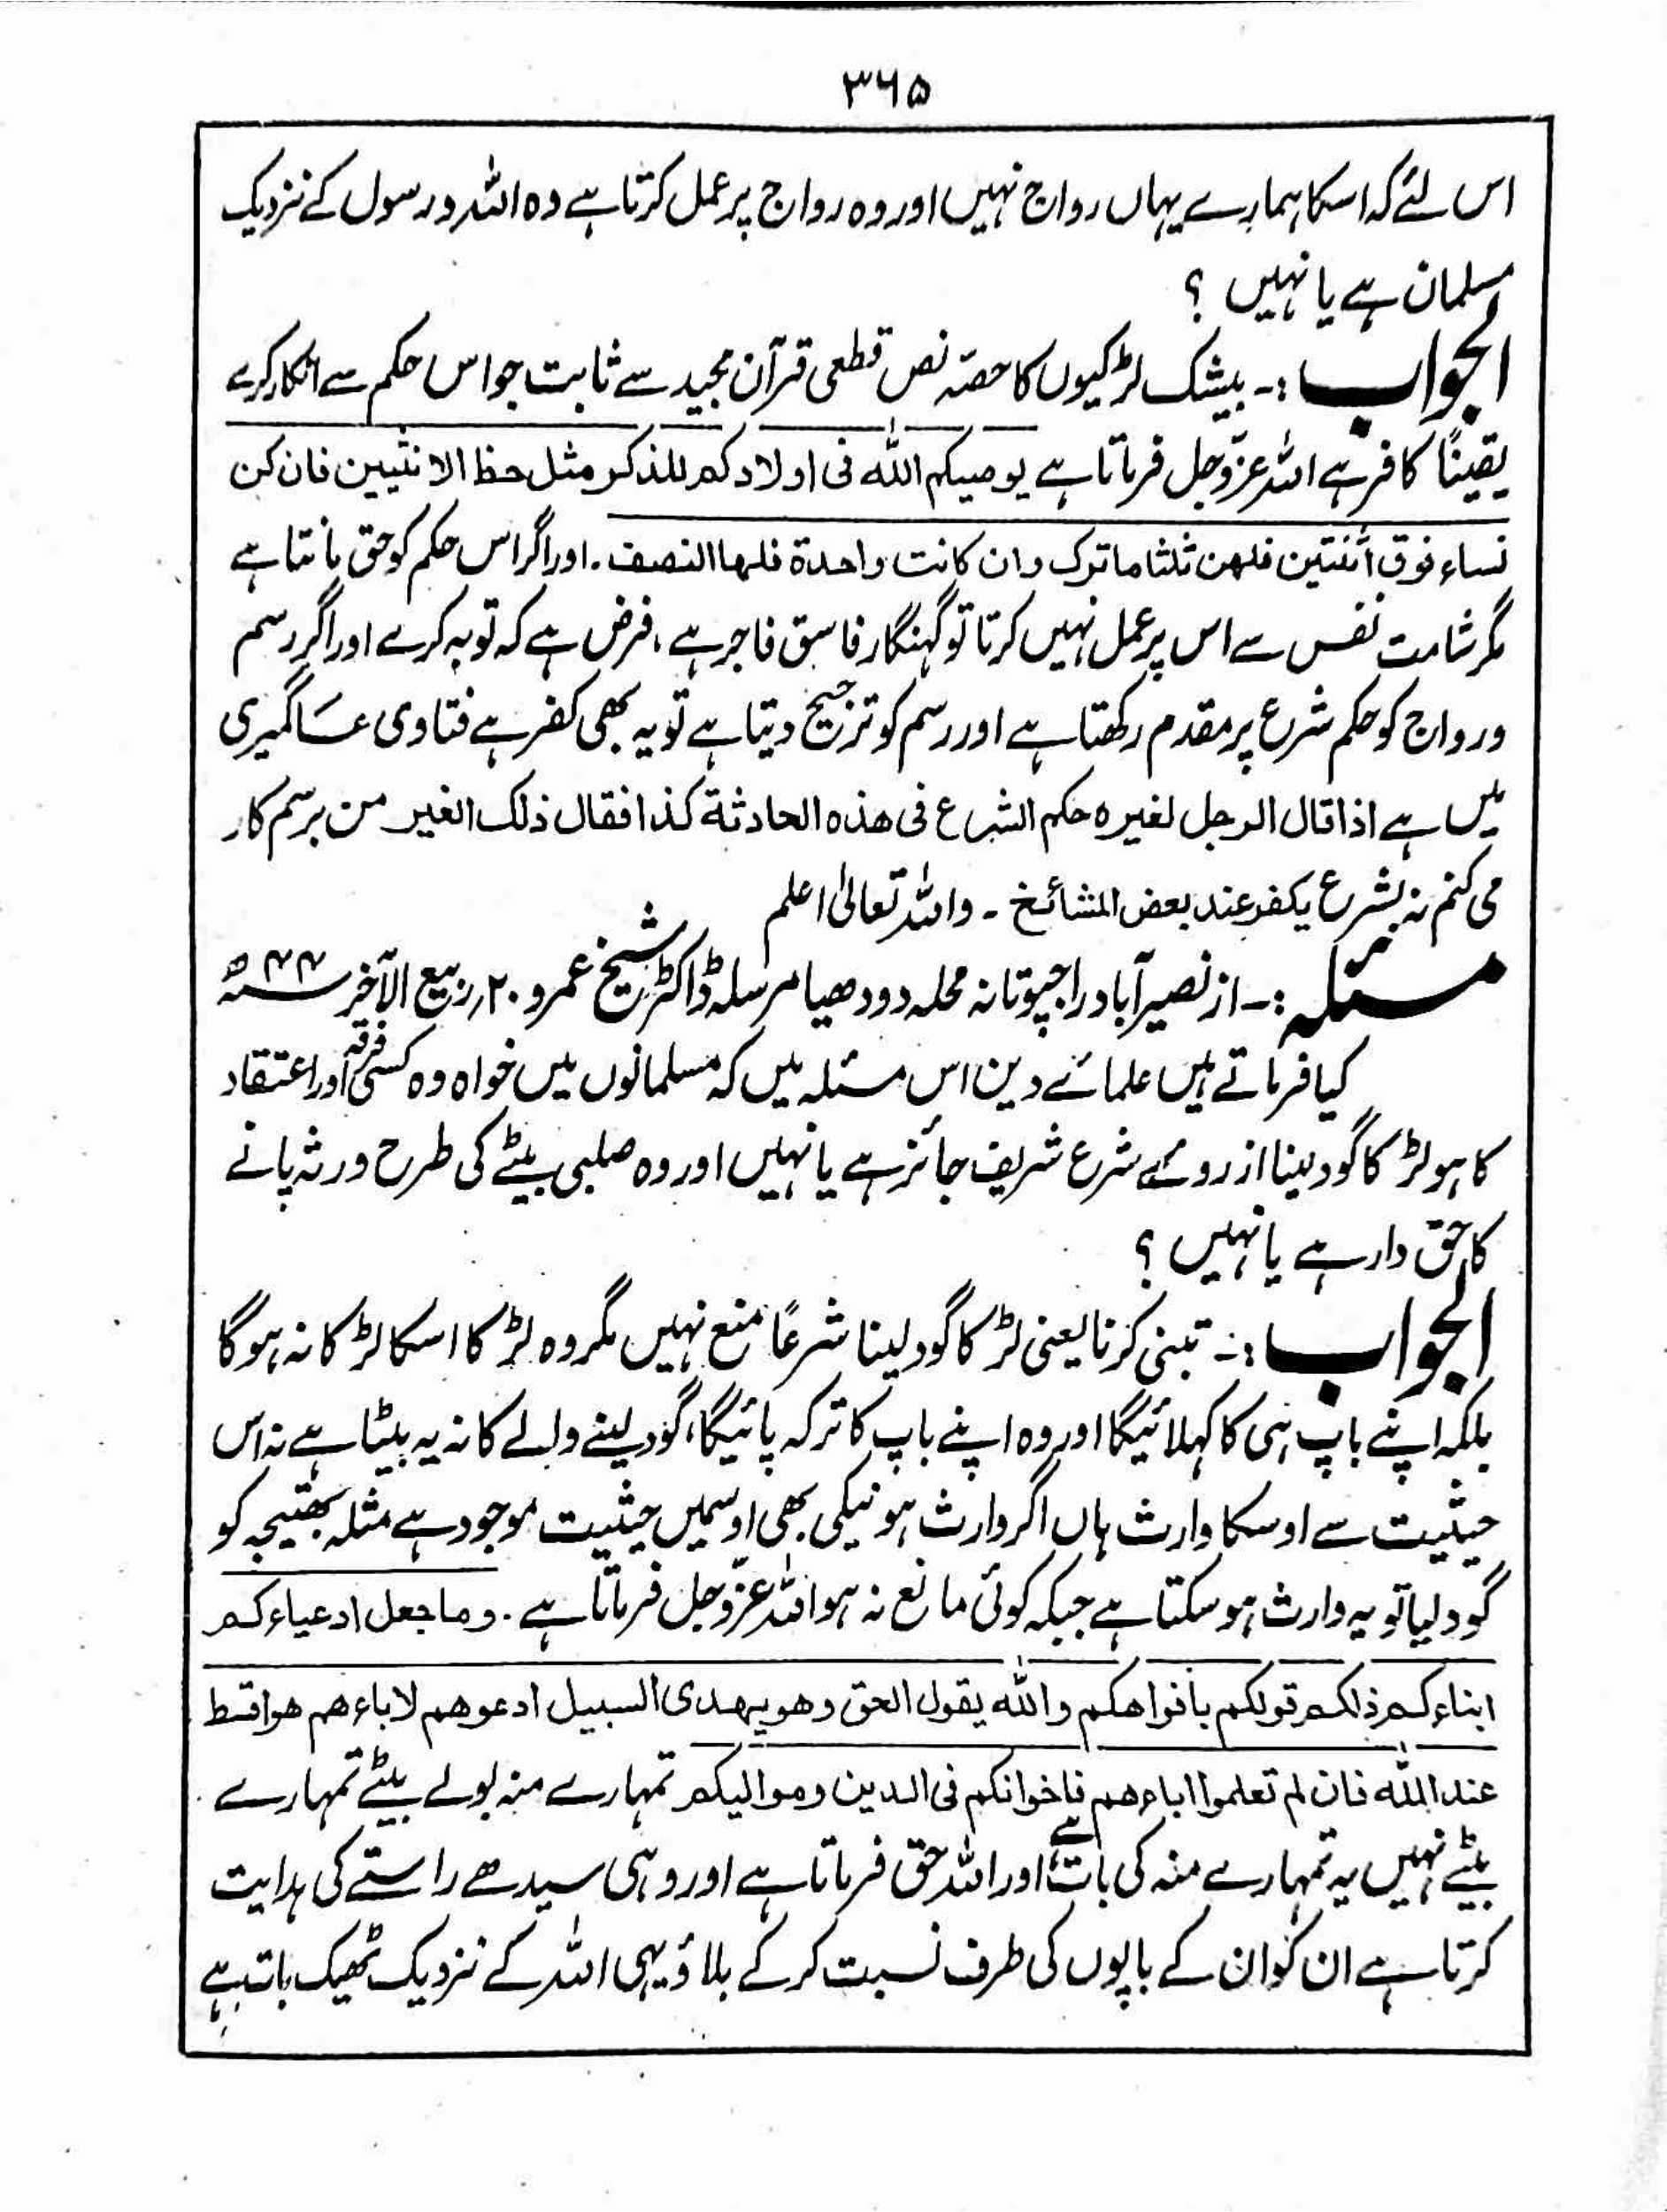 ۳۶۵
اس لئے کہ اسکا ہمارے یہاں رواج نہیں اور وہ رواج پر عمل کرتا ہے وہ اللہ ورسول کے نزدیک
مسلمان ہے یا نہیں ؟
الجواب :۔ بیشک لڑکیوں کا حصّہ نص قطعی قرآن مجید سے ثابت جو اس حکم سے انکار کرے
یقیناً کافر ہے اللہ عزّوجل فرماتا ہے یوصیکم اللہ فی اولادکم للذکر مثل حظ الانثیین فان کن
نساء فوق اثنتین فلهن ثلثا ماترک وان کانت واحدة فلها النصف ۔ اور اگر اس حکم کو حق مانتا ہے
مگر شامت نفس سے اس پر عمل نہیں کرتا تو گہنگار فاسق فاجر ہے ، فرض ہے کہ توبہ کرے اور اگر رسم
ورواج کو حکم شرع پر مقدم رکھتا ہے اور رسم کو ترجیح دیتا ہے تو یہ بھی کفر ہے فتاوی عالمگیری
میں ہے اذا قال الرجل لغیره حکم الشرع فی هذه الحادثة کذا فقال ذلک الغیر من برسم کار
می کنم نہ بشرع یکفر عند بعض المشائخ ۔ واللہ تعالیٰ اعلم
مسئلہ :۔ از نصیرآباد راجپوتانہ محلہ دودھیا مرسلہ ڈاکٹر شیخ عمرو ۲۰؍ ربیع الآخر سنہ ۴۴ھ
کیا فرماتے ہیں علمائے دین اس مسئلہ میں کہ مسلمانوں میں خواہ وہ کسی فرقہ اور اعتقاد
کا ہو لڑکا گود لینا از روئے شرع شریف جائز ہے یا نہیں اور وہ صلبی بیٹے کی طرح ورثہ پانے
کا حق دار ہے یا نہیں ؟
الجواب :۔ تبنی کرنا یعنی لڑکا گود لینا شرعًا منع نہیں مگر وہ لڑکا اسکا لڑکا نہ ہوگا
بلکہ اپنے باپ ہی کا کہلائیگا اور وہ اپنے باپ کا ترکہ پائیگا، گود لینے والے کا نہ یہ بیٹا ہے نہ اس
حیثیت سے اوسکا وارث ہاں اگر وارث ہونیکی بھی اوسمیں حیثیت موجود ہے مثلہ بھتیجہ کو
گود لیا تو یہ وارث ہو سکتا ہے جبکہ کوئی مانع نہ ہو اللہ عزّوجل فرماتا ہے ۔ وما جعل ادعیاءکم
ابناءکم ذلکم قولکم بافواهکم واللہ یقول الحق وهو یهدی السبیل ادعوهم لاباءهم هو اقسط
عند اللہ فان لم تعلموا اباءهم فاخوانکم فی الدین وموالیکم تمہارے منہ بولے بیٹے تمہارے
بیٹے نہیں یہ تمہارے منہ کی بات ہے اور اللہ حق فرماتا ہے اور وہی سیدھے راستے کی ہدایت
کرتا ہے ان کو ان کے باپوں کی طرف نسبت کر کے بلاؤ یہی اللہ کے نزدیک ٹھیک بات ہے